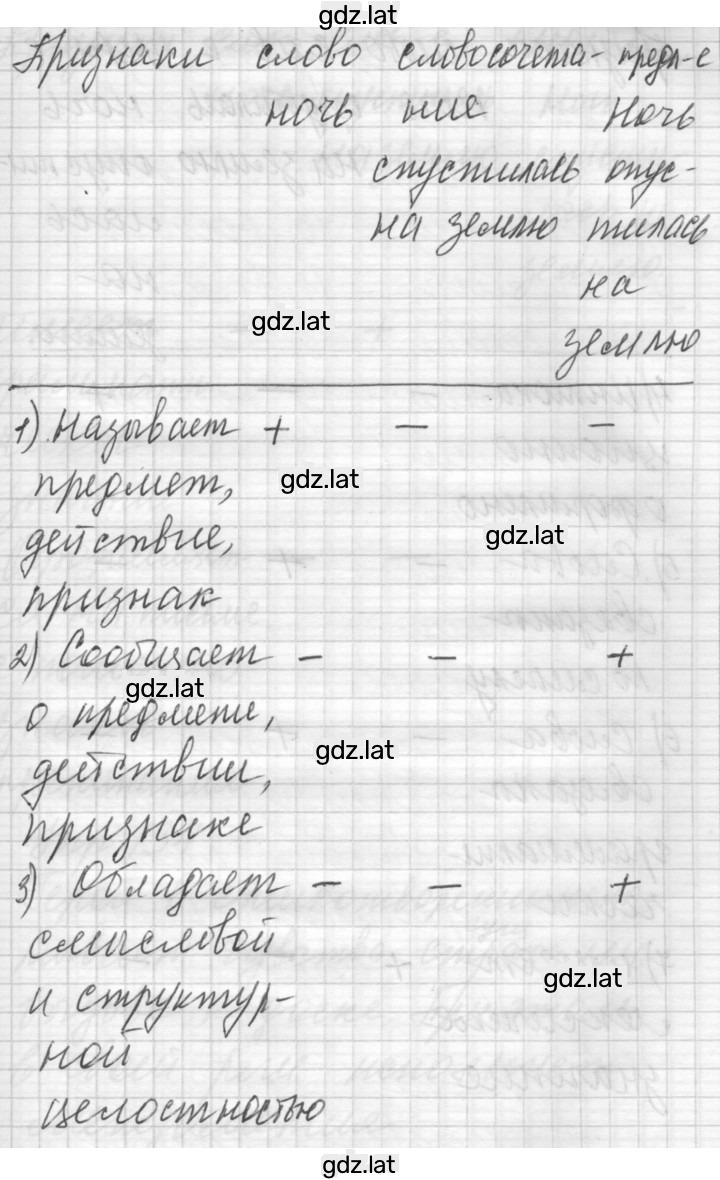 gdz.lat
Признаки слово словосочета- предл-е
ночь ние Ночь
спустилась опус-
на землю тилась
на
gdz.lat
землю
1) Называет + — —
предмет, gdz.lat
действие, gdz.lat
признак
2) Сообщает — — +
gdz.lat
о предмете,
действии, gdz.lat
признаке
3) Обладает — — +
смысловой
и структур- gdz.lat
ной
целостностью
gdz.lat